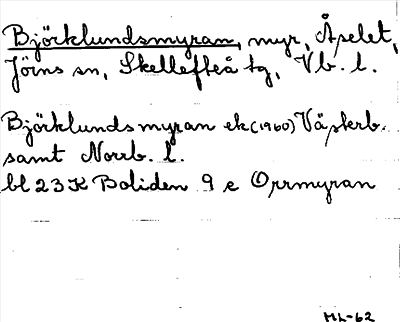 Björklundsmyran, myr, Åselet,
Jörns sn, Skellefteå tg, Vb. l.
Björklundsmyran ek (1960) Västerb.
samt Norrb. l.
bl 23 K Boliden 9 e Orrmyran
ML-62